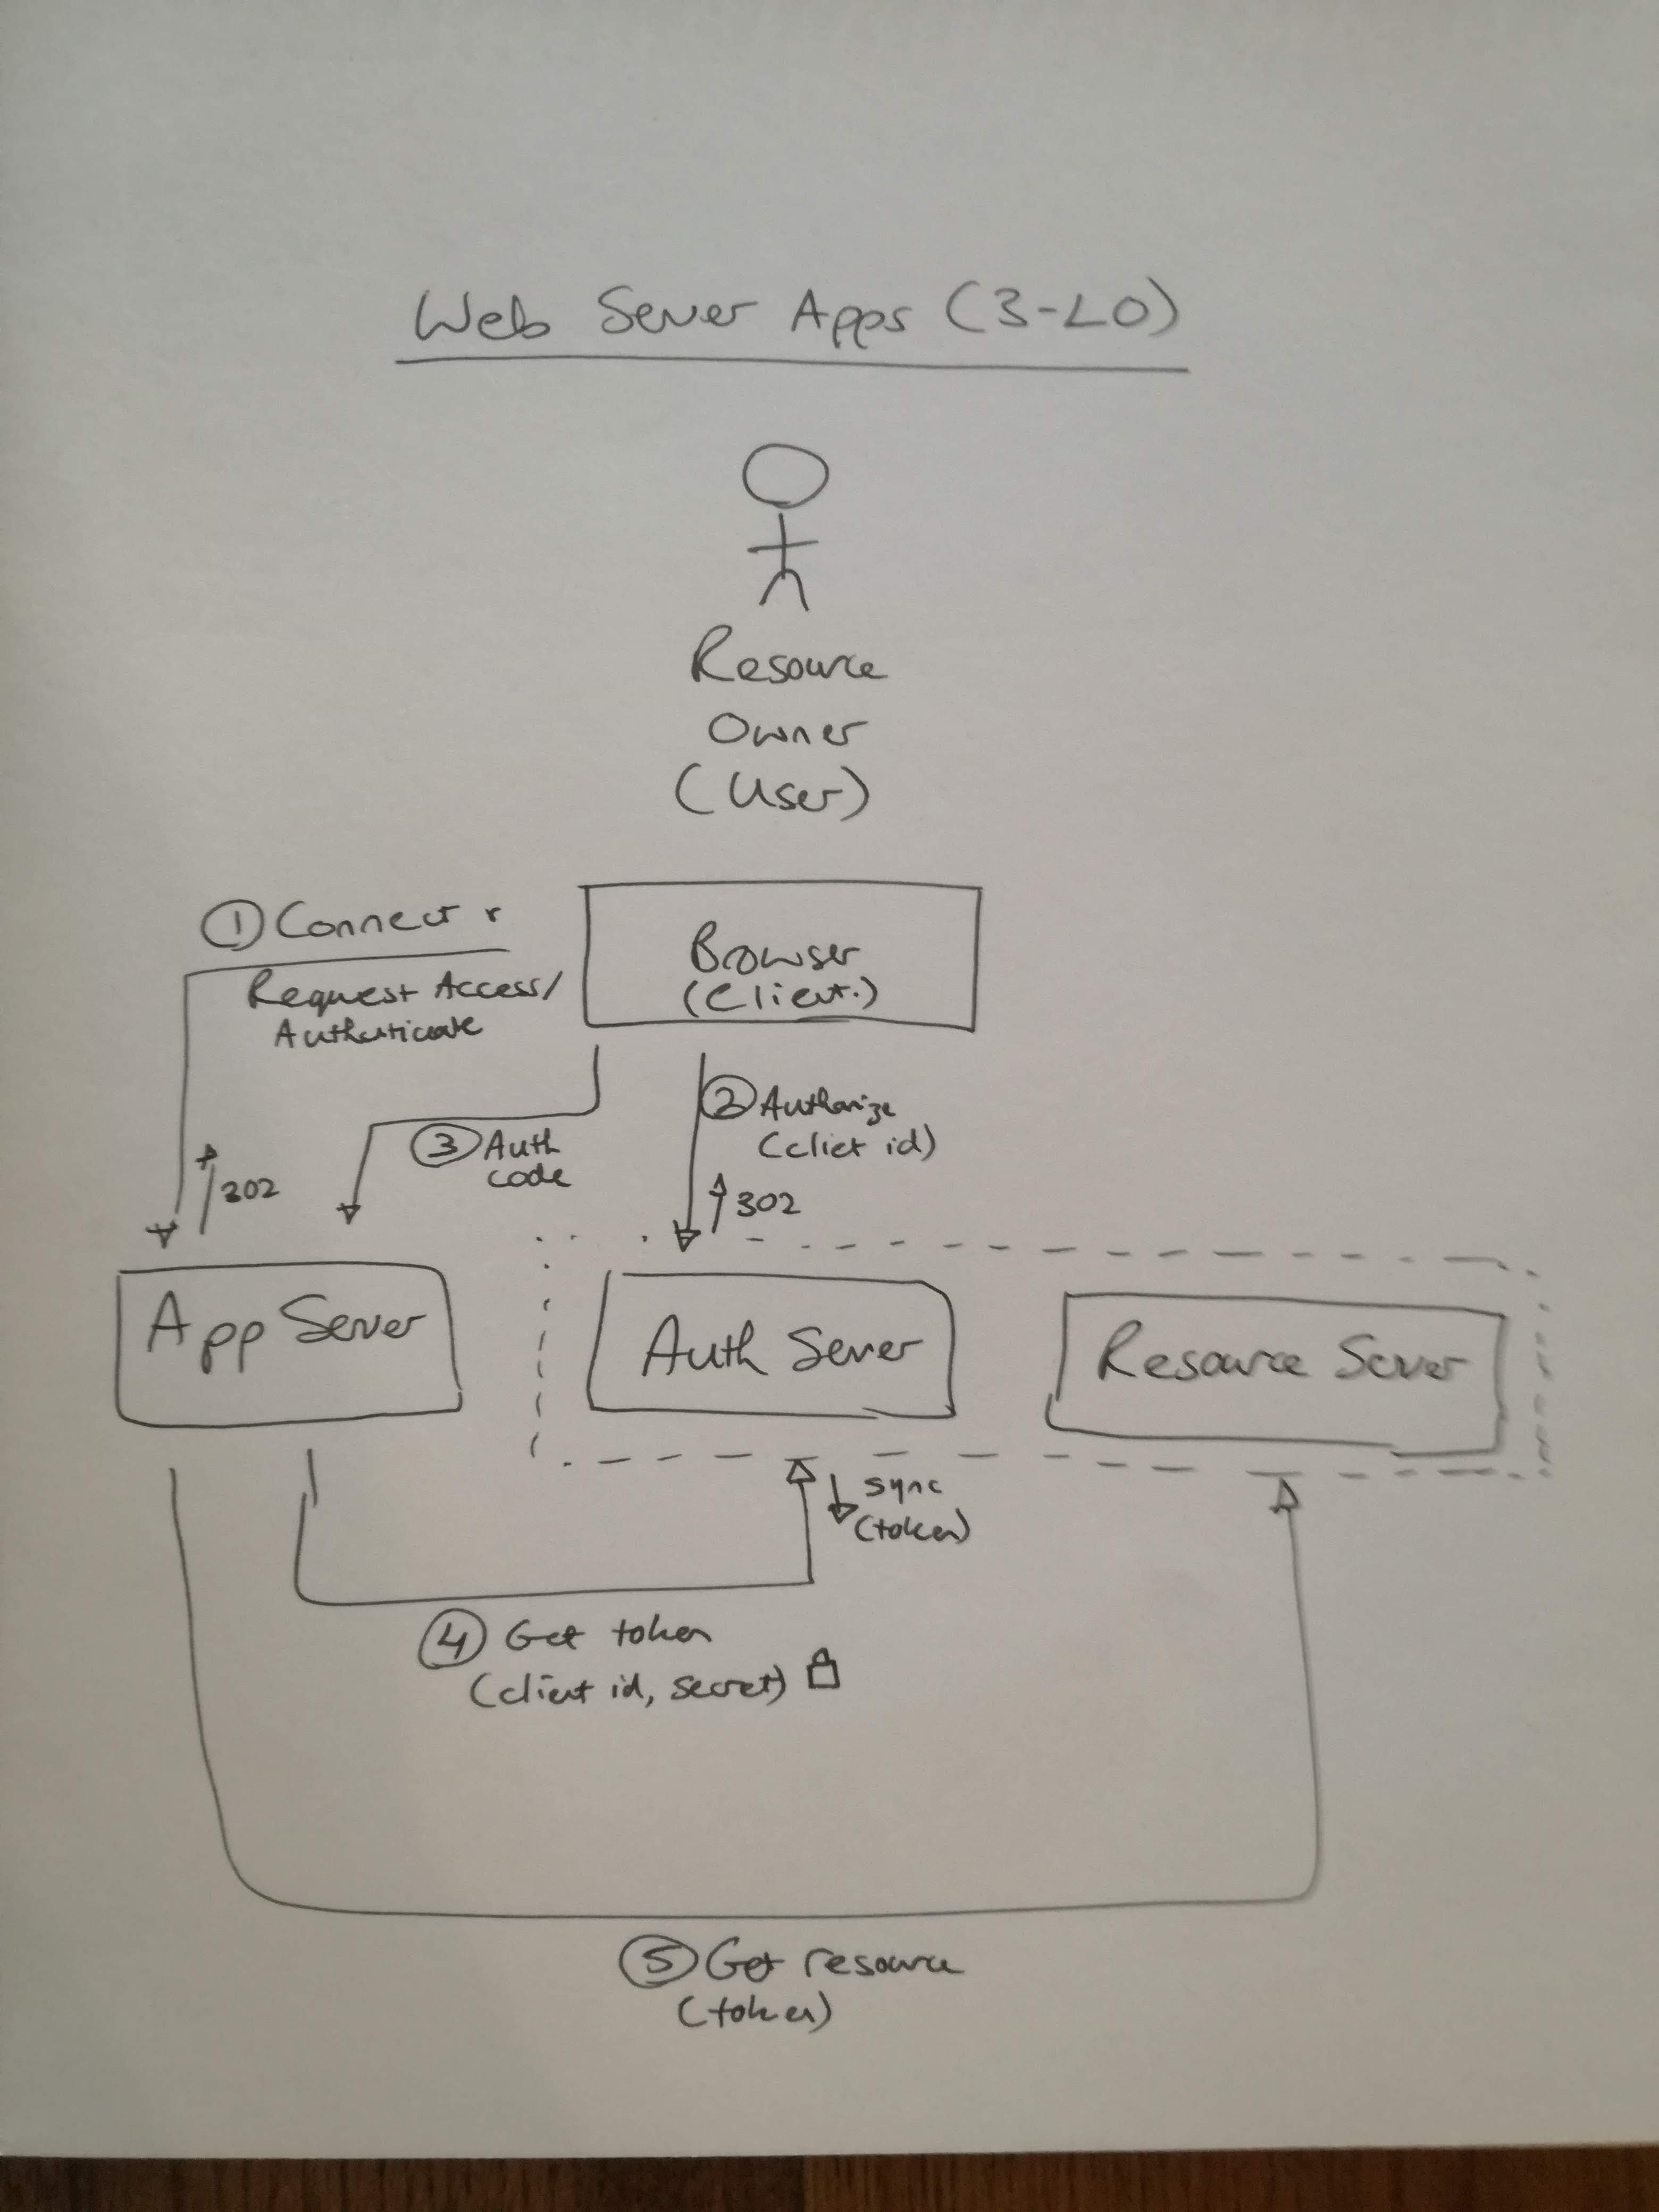 Web Server Apps (3-LO)
Resource
Owner
(User)
① Connect
Request Access/
Authenticate
Browser
(Client)
② Authorize
(cliet id)
③ Auth
code
302
302
App Server
Auth Server
Resource Server
sync
(token)
④ Get token
(client id, secret)
⑤ Get resource
(token)